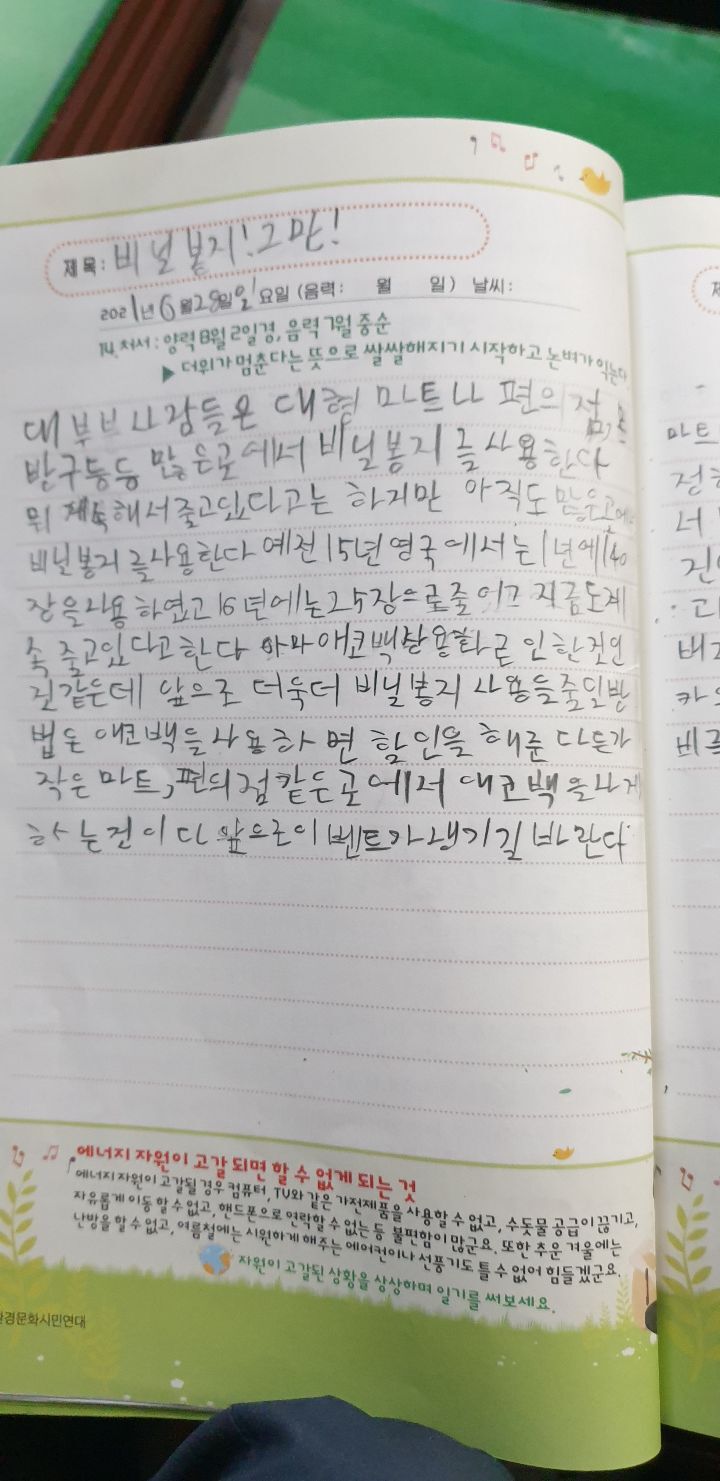 제목: 비닐봉지!그만!
2021년 6월28일일요일 (음력: 월 일) 날씨:
14. 처서 : 양력 8월 2일경, 음력 7월 중순
▶ 더위가 멈춘다는 뜻으로 쌀쌀해지기 시작하고 논벼가 익는다.
대부부사람들은 대형 마트나 편의점,
많은곳에서 비닐봉지를사용한다
뭐 계속해서줄고있다고는 하지만 아직도 많은곳에서
비닐봉지를사용한다 예전15년영국에서는1년에140
장을사용하였고19년에는25장으로줄 지금도계
속 줄고있다고한다 아마애코백 인한것인
것같은데 앞으로 더욱더 비닐봉지 사용을줄일방
법은 애코백을사용하면 할인을 해준다든가
작은마트,편의점같은곳에서 애코백을사게
하는것이다 앞으로이벤트가생기길바란다
에너지 자원이 고갈 되면 할 수 없게 되는 것
에너지 자원이 고갈될 경우 컴퓨터, TV와 같은 가전제품을 사용할 수 없고, 수돗물 공급이 끊기고,
자유롭게 이동 할 수 없고, 핸드폰으로 연락할 수 없는 등 불편함이 많군요. 또한 추운 겨울에는
난방을 할 수 없고, 여름철에는 시원하게 해주는 에어컨이나 선풍기도 틀 수 없어 힘들겠군요.
자원이 고갈된 상황을 상상하며 일기를 써보세요.
환경문화시민연대
마트